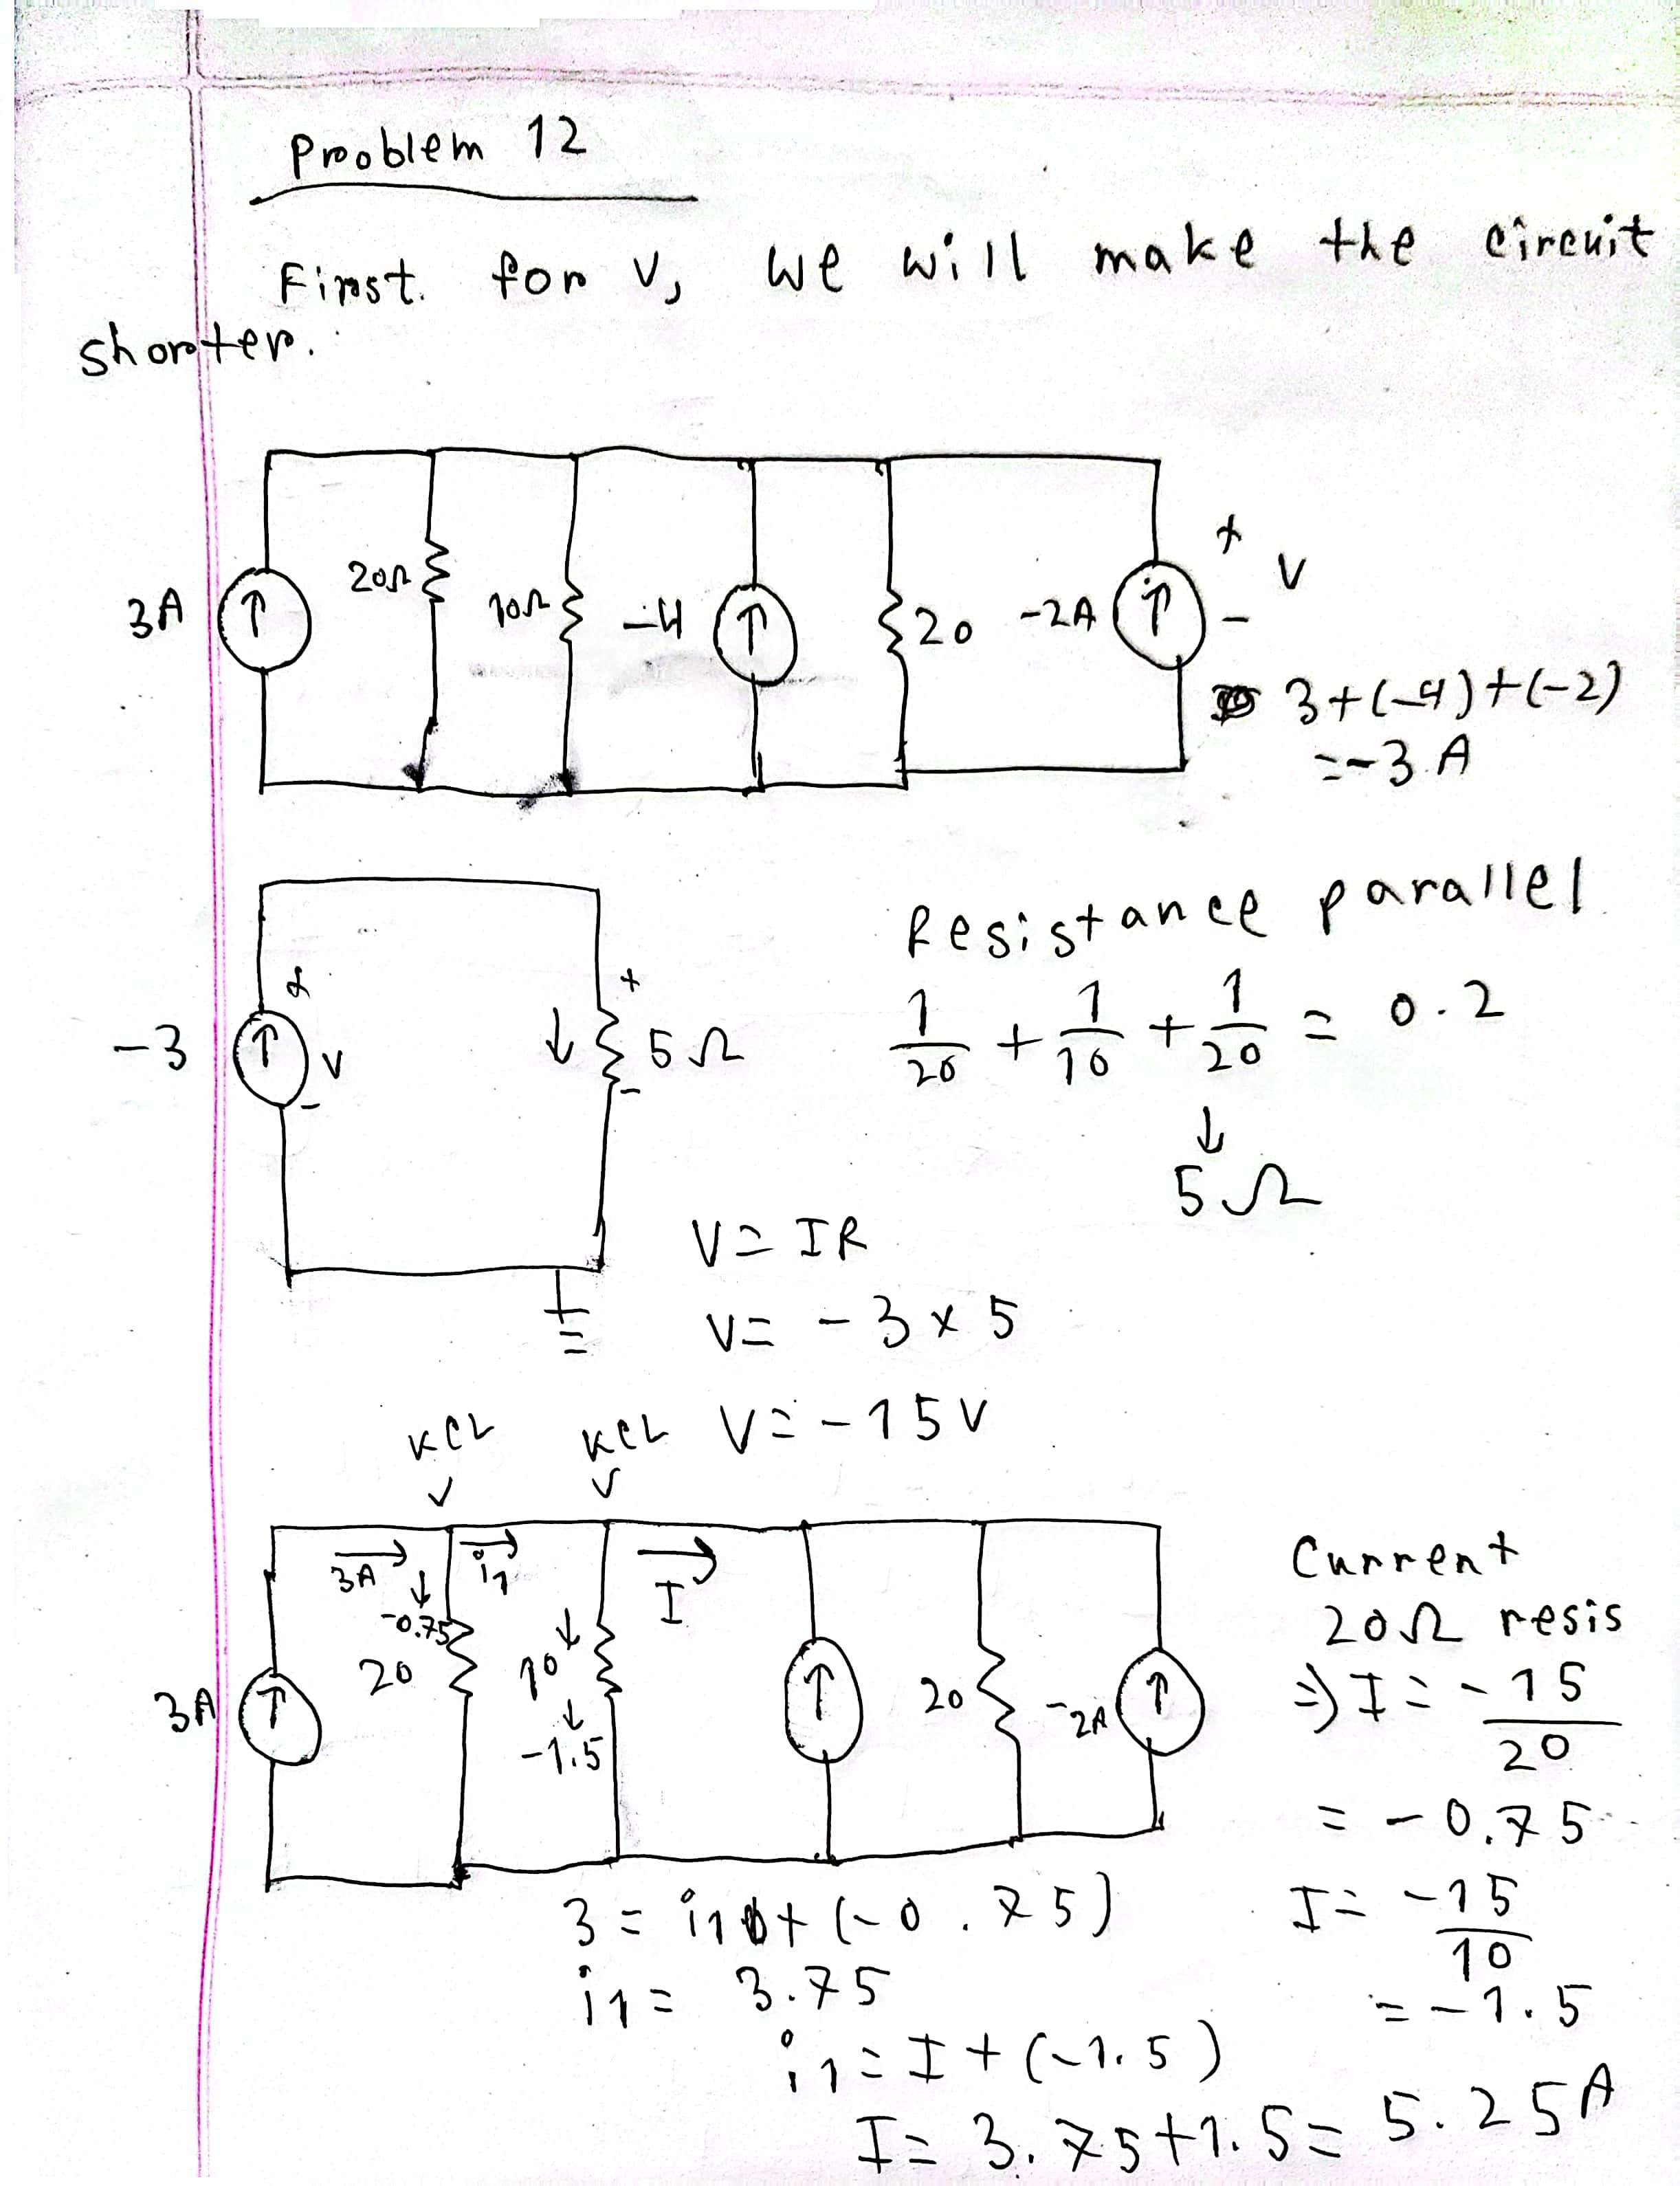 Problem 12
First. for V, we will make the circuit
shorter.
3A
20Ω
10Ω
-4
20
-2A
+
V
-
3+(-4)+(-2)
=-3 A
-3
+
V
-
+
5Ω
-
Resistance parallel
1/20 + 1/10 + 1/20 = 0.2
↓
5Ω
V = IR
V = -3 × 5
V = -15V
KCL
KCL
3A
3A
-0.75
20
i1
10
-1.5
I
20
-2A
Current
20Ω resis
⇒ I = -15/20
= -0.75
I = -15/10
= -1.5
3 = i1 + (-0.75)
i1 = 3.75
i1 = I + (-1.5)
I = 3.75+1.5 = 5.25A